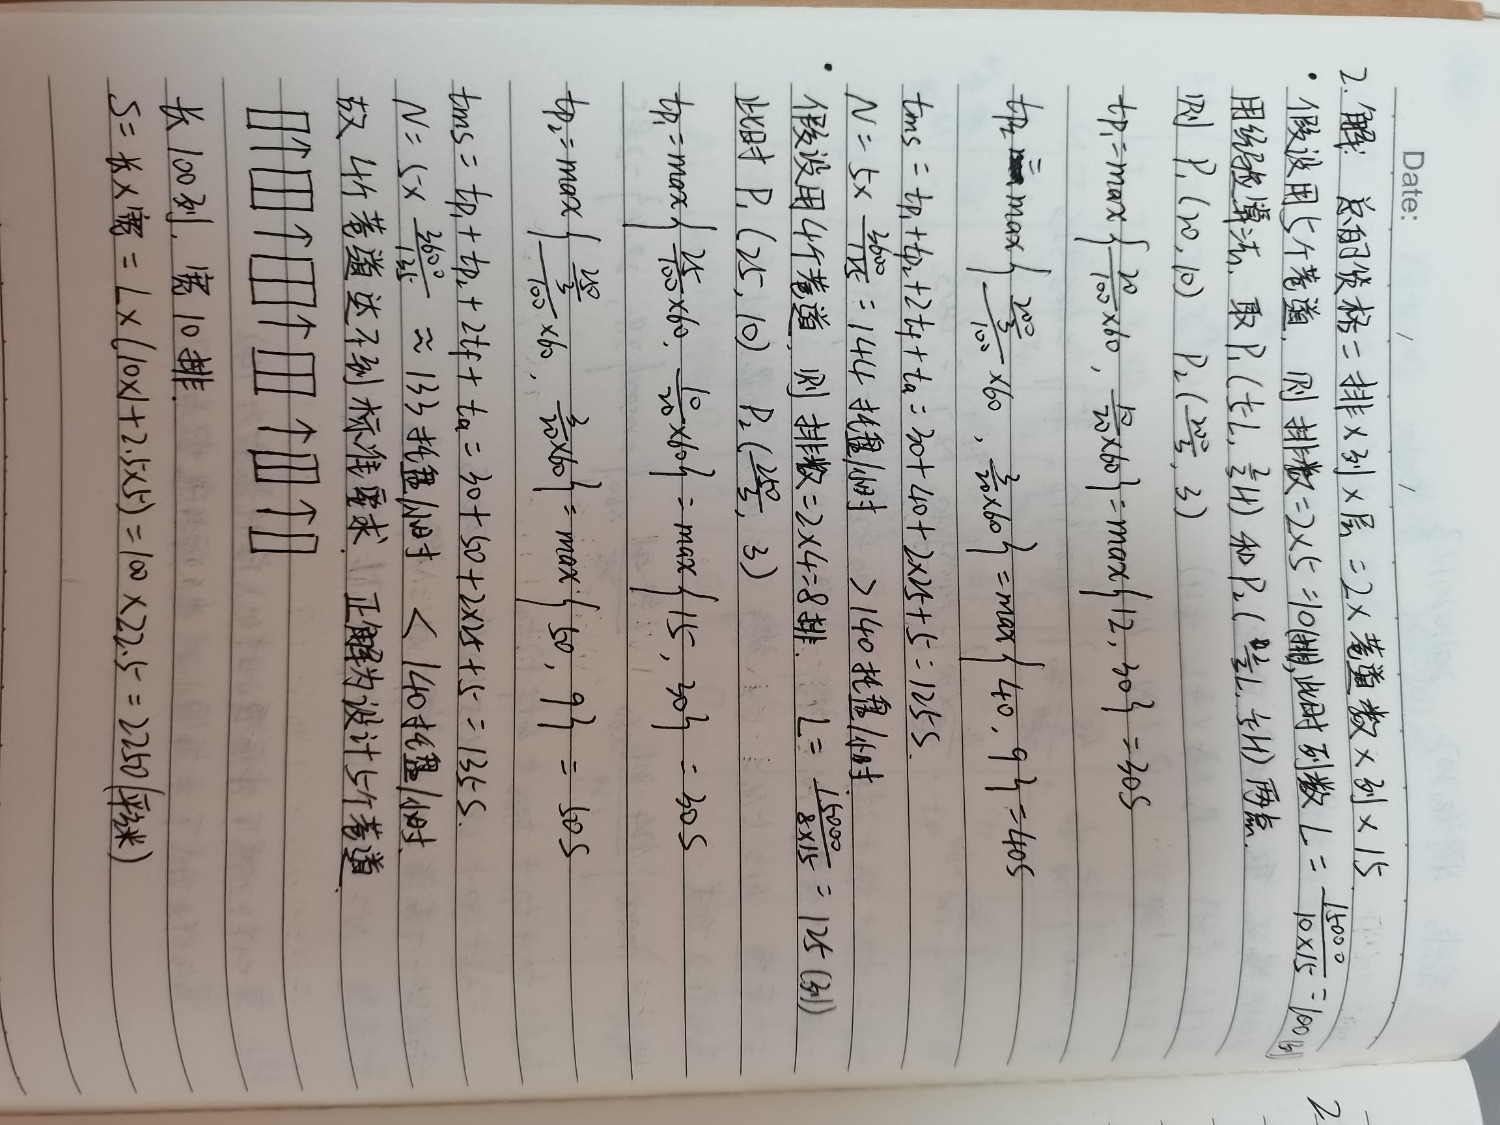 Date: / /
2. 解: 总的货格=排×列×层=2×巷道数×列×15
· 假设用5个巷道, 则排数=2×5=10(排),此时列数L=15000/10×15=100(列)
用经验算法, 取P₁(1/5L, 2/3H)和P₂(2/3L, 1/5H)两点.
则 P₁(20, 10) P₂(200/3, 3)
tp₁=max{20/100×60, 10/20×60}=max{12, 30}=30s
tp₂=max{200/3/100×60, 3/20×60}=max{40, 9}=40s
tms=tp₁+tp₂+2tf+ta=30+40+2×25+5=125s.
N=5×3600/125=144托盘/小时 >140托盘/小时.
· 假设用4个巷道, 则排数=2×4=8排. L=15000/8×15=125(列)
此时P₁(25, 10) P₂(250/3, 3)
tp₁=max{25/100×60, 10/20×60}=max{15, 30}=30s
tp₂=max{250/3/100×60, 3/20×60}=max{50, 9}=50s
tms=tp₁+tp₂+2tf+ta=30+50+2×25+5=135s.
N=5×3600/135≈133托盘/小时<140托盘/小时.
故4个巷道达不到标准要求. 正解为设计5个巷道.
长100列, 宽10排.
S=长×宽=L×(10×1+2.5×5)=100×22.5=2250(平米)
2